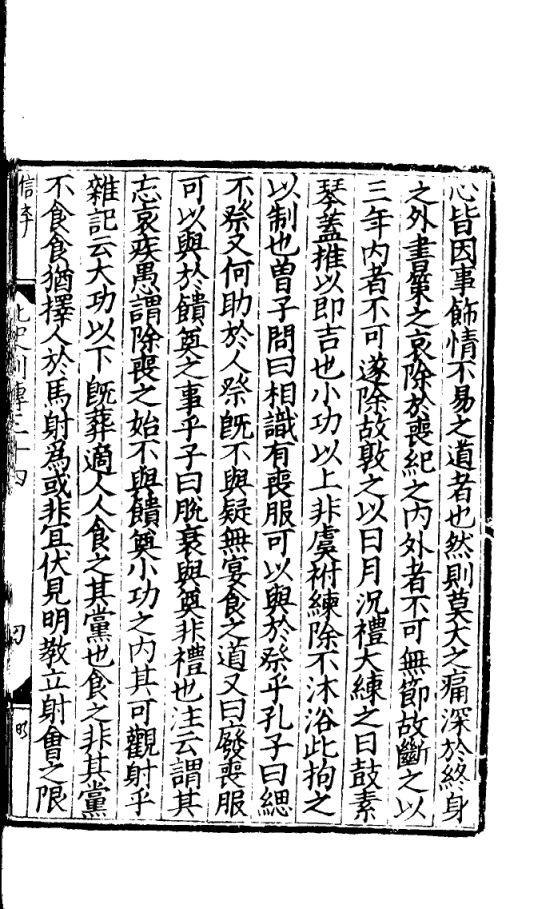 心皆因事飾情不易之道者也然則莫大之痛深於終身
之外書策之哀除於喪紀之内外者不可無節故斷之以
三年内者不可遂除故敦之以日月況禮大練之日鼓素
琴蓋推以即吉也小功以上非虞祔練除不沐浴此拘之
以制也曽子問曰相識有喪服可以與於祭乎孔子曰緦
不祭又何助於人祭既不與疑無宴食之道又曰廢喪服
可以與於饋奠之事乎子曰脫衰與奠非禮也注云謂其
忘哀疾愚謂除喪之始不與饋奠小功之内其可觀射乎
雜記云大功以下既葬適人人食之其黨也食之非其黨
不食食猶擇人於馬射爲或非宜伏見明敎立射會之限
信李
北史列傳三十四